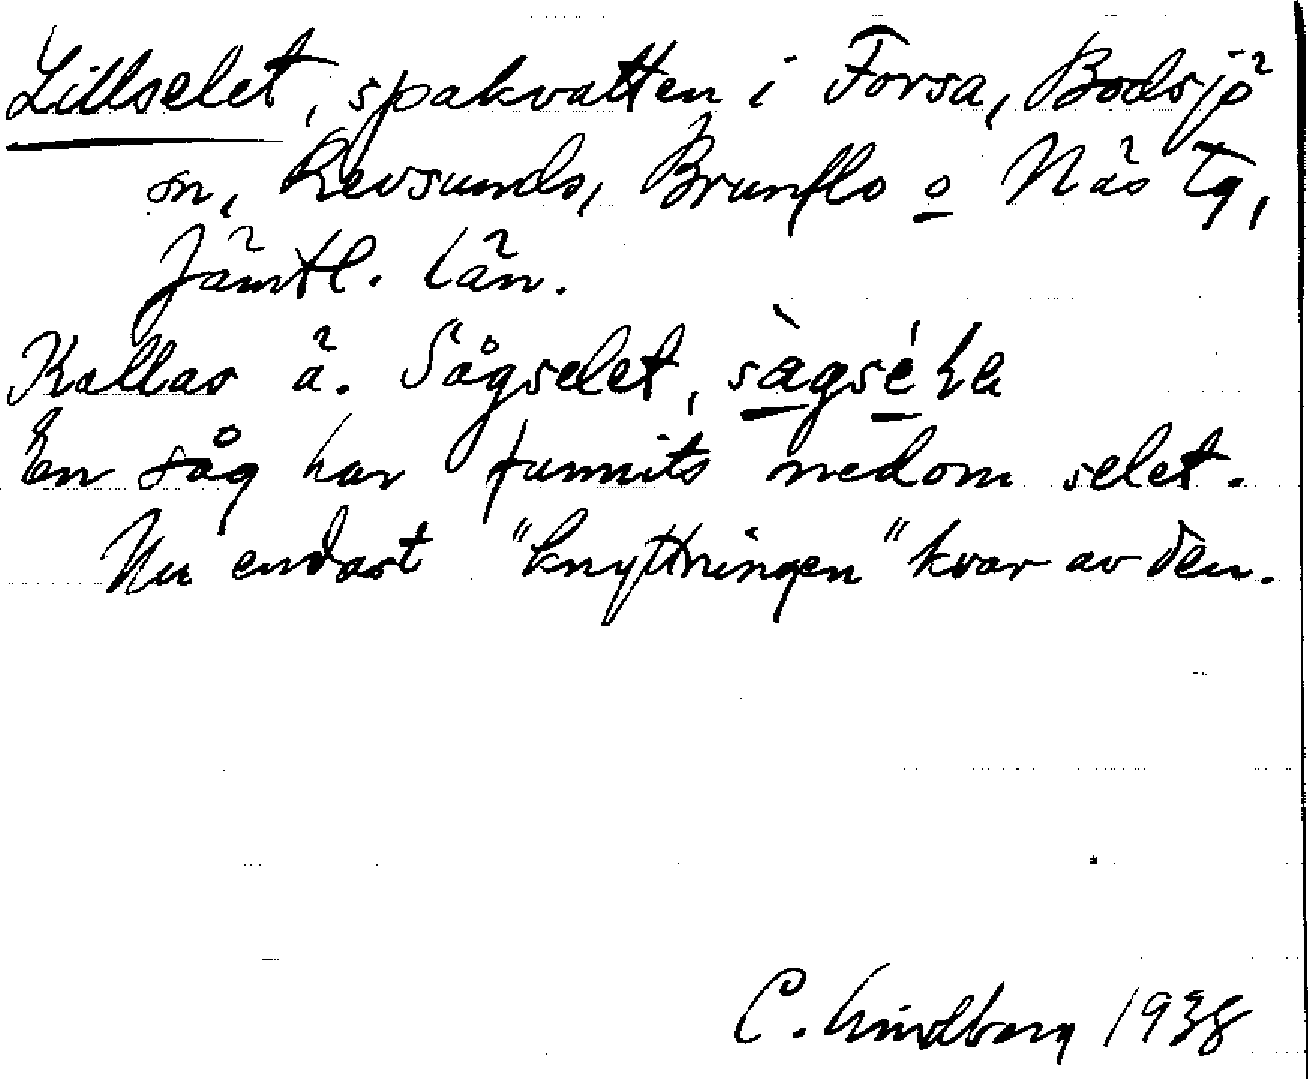 Lillselet, spakvatten i Forsa, Bodsjö
sn, Revsunds, Brunflo o Näs tg,
Jämtl. län.
Kallas ä. Sågselet, sàgsé
En såg har funnits nedom selet.
Nu endast "knyttningen" kvar av den.
C. Lindberg 1938